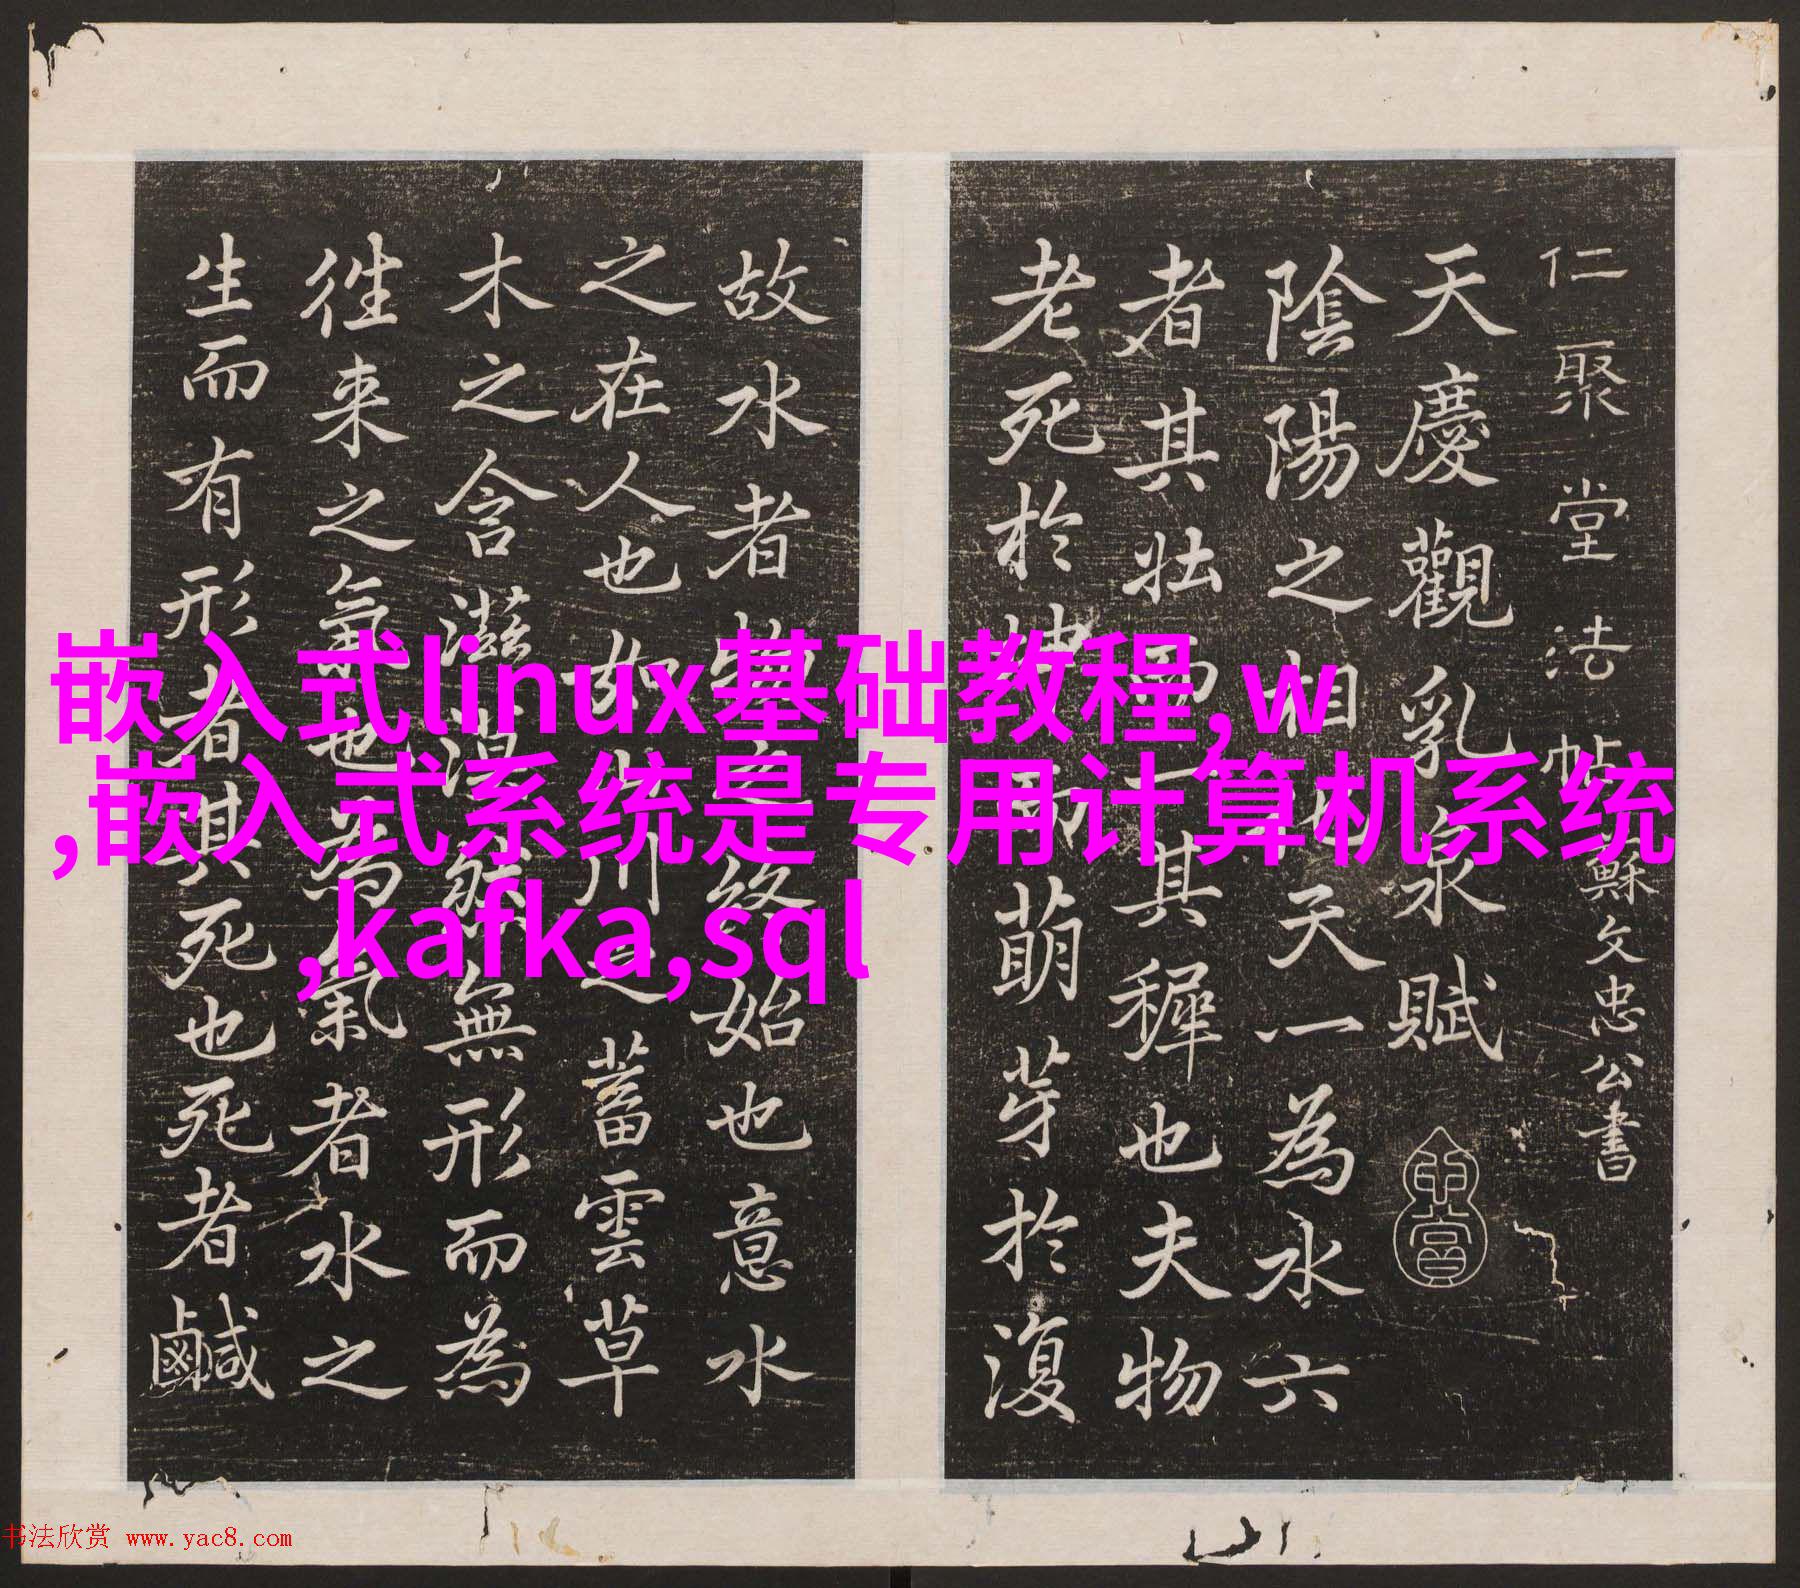 仁聚堂法帖 蘇文忠公書
天慶觀乳泉賦
陰陽之相化天一為水六
者其壯而一其稺也夫物
老死於坤而萌芽於復
故水者物之終始也意水
之在人也如山川之蓄雲草
木之含滋漠然無形而為
徃来之氣也為氣者水之
生而有形者其死也死者鹹
嵌入式linux基础教程,w
,嵌入式系统是专用计算机系统
,kafka,sql
书法欣赏 www.yac8.com